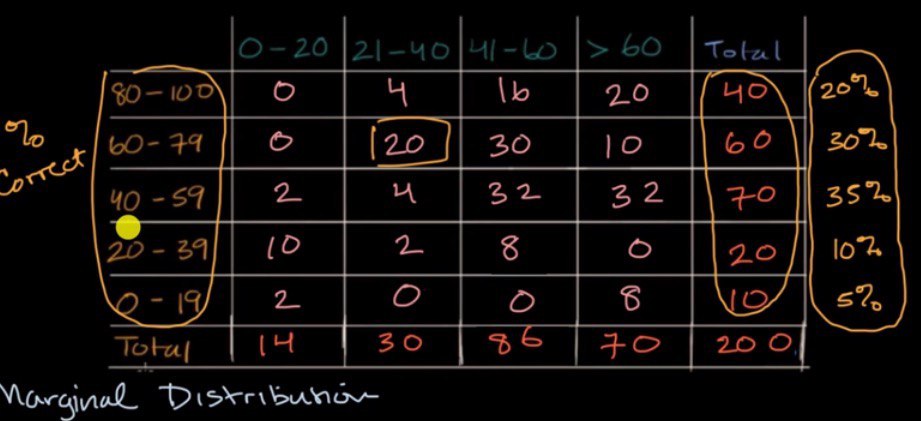 0-20 21-40 41-60 >60 Total
80-100 0 4 16 20 40 20%
60-79 0 20 30 10 60 30%
% Correct
40-59 2 4 32 32 70 35%
20-39 10 2 8 0 20 10%
0-19 2 0 0 8 10 5%
Total 14 30 86 70 200
Marginal Distribution